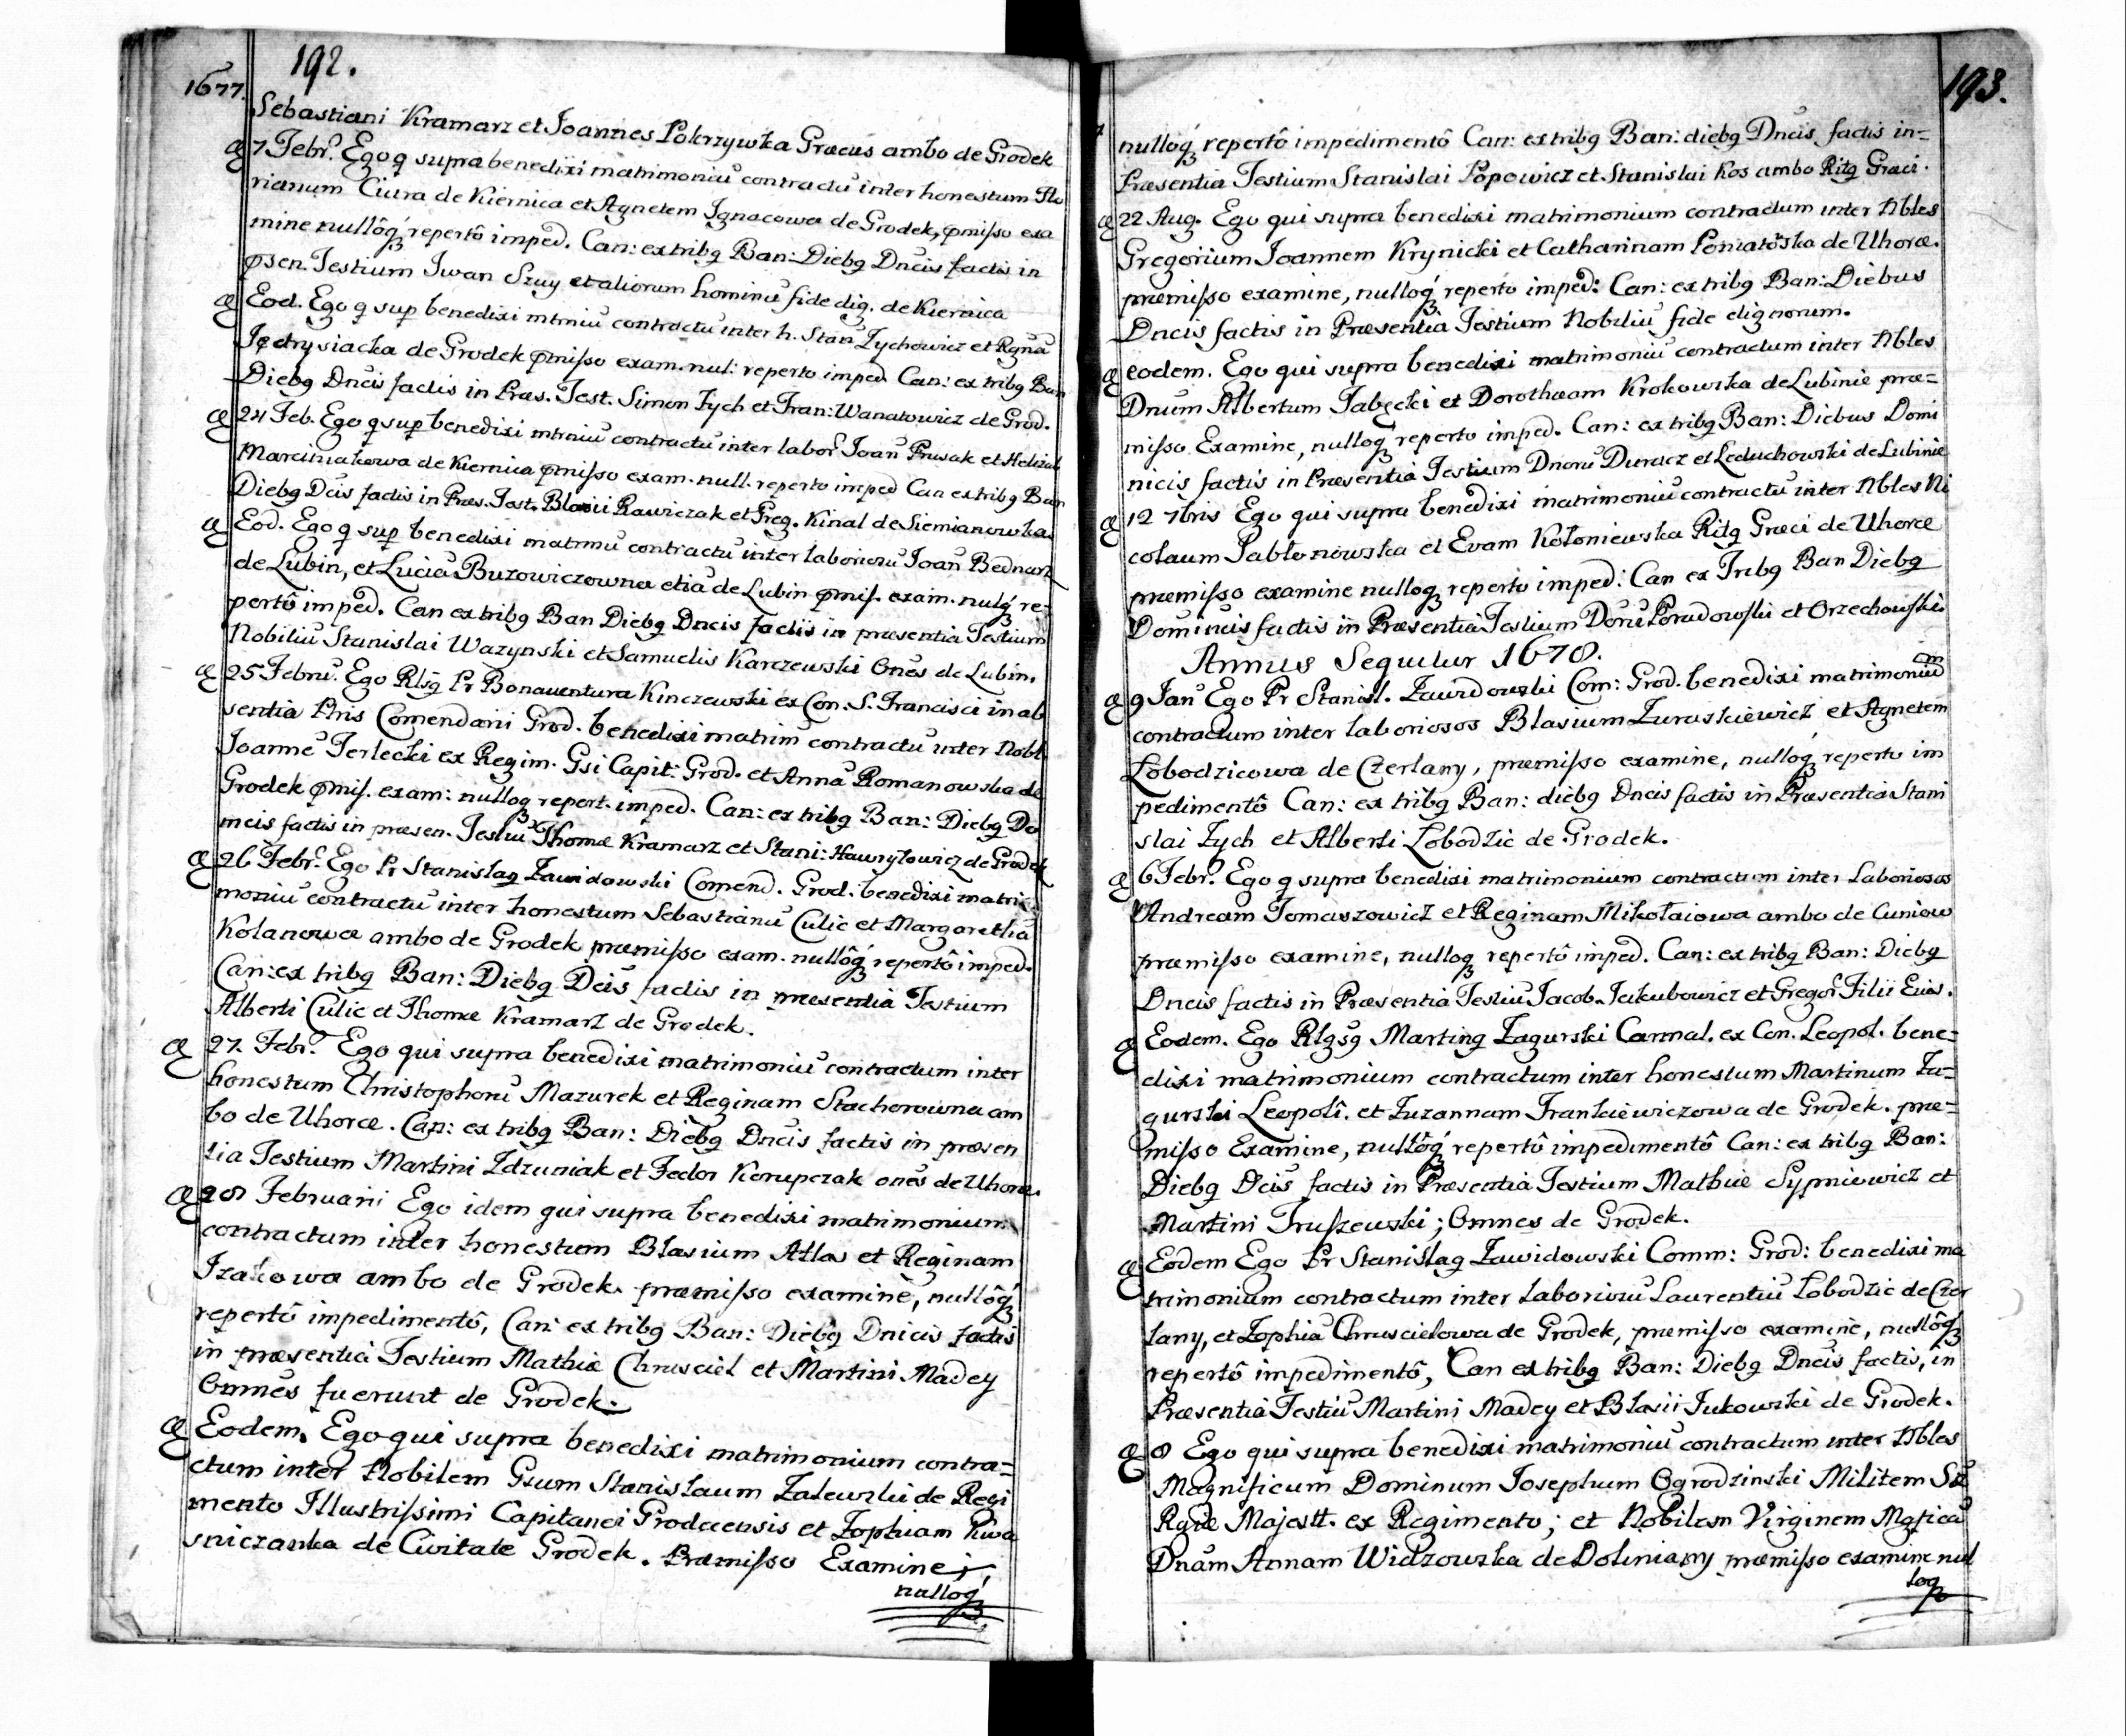 192.
1677.
Sebastiani Kramarz et Joannes Pokrzywka Græcus ambo de Grodek
7 Febr. Ego q supra benedixi matrimoniū contractū inter honestum Flo
rianum Ciura de Kiernica et Agnetem Ignacowa de Grodek, pmisso exa
mine nullôq́ʒ repertô imped. Can: ex tribq Ban: Diebq Dncis factis in
psen. Testium Iwan Szuy et aliorum hominū fide dig. de Kiernica
Eod. Ego q sup benedixi mtrniū contractū inter h. Stan Zychowicz et Regnā
Jędrysiacka de Grodek pmisso exam. nul: reperto imped Can: ex tribq Ban
Diebq Dncis factis in Præs. Test. Simon Zych et Fran: Wanatowicz de Grod.
24 Feb. Ego q sup benedixi mtrniū contractū inter labor Joan Prusak et
Marciniakowa de Kiernica pmisso exam. null. reperto imped Can ex tribq Ban
Diebq Dcis factis in Præs. Test. Blasii Rawiczak et Greg. Kinal de Siemianowka
Eod. Ego q sup benedixi matrmū contractū inter laboriosū Joan Bednarz
de Lubin, et Luciā Buzowiczowna etiā de Lubin pmis. exam. nulq́ re-
pertô imped. Can ex tribq Ban Diebq Dncis factis in præsentia Testium
Nobiliū Stanislai Wazynski et Samuelis Karczewski Onēs de Lubin.
25 Febru. Ego Rlsq Pr Bonauentura Kinczewski ex Con. S. Francisci in ab
sentia Pris Comendarii Grod. benedixi matrim contractū inter Nobl
Joannē Terlecki ex Regim. Gsi Capit: Grod. et Annā Romanowska de
Grodek pmis. exam: nulloqʒ repert. imped. Can: ex tribq Ban: Diebq Do
mcis factis in præsen. Testiū Thomæ Kramarz et Stani: Hawryłowicz de Grodek
26 Febr. Ego Pr Stanislaq Zawidowski Comend. Grod. benedixi matri
moniū contractū inter honestum Sebastianū Culic et Margarethā
Kolanowa ambo de Grodek præmisso exam. nullôq́ʒ repertô imped.
Can: ex tribq Ban: Diebq Dcis factis in præsentia Testium
Alberti Culic et Thomæ Kramarz de Grodek.
27. Febr. Ego qui supra benedixi matrimoniū contractum inter
honestum Christophorū Mazurek et Reginam Stachorowna am
bo de Uhorce. Can: ex tribq Ban: Diebq Dncis factis in præsen
tia Testium Martini Zdzuniak et Fedor Korupczak onēs de Uhorce.
28 Februarii Ego idem qui supra benedixi matrimonium
contractum inter honestum Blasium Atlas et Reginam
Izakowa ambo de Grodek. præmisso examine, nullôq́ʒ
repertô impedimentô, Can: ex tribq Ban: Diebq Dnicis factis
in præsentia Testium Mathiæ Chrusciel et Martini Madey
Omnes fuerunt de Grodek.
Eodem. Ego qui supra benedixi matrimonium contra=
ctum inter Nobilem Gsum Stanislaum Zalewski de Regi
mento Illustrissimi Capitanei Grodecensis et Zophiam Kwa
sniczanka de Civitate Grodek. Præmisso Examine;
nulloq́ʒ
193.
nulloq́ʒ repertô impedimentô Can: ex tribq Ban: diebq Dncis factis in=
Præsentia Testium Stanislai Popowicz et Stanislai Kos ambo Ritq Græci.
22 Aug. Ego qui supra benedixi matrimonium contractum inter Nbles
Gregorium Joannem Krynicki et Catharinam Poniatowska de Uhorce.
præmisso examine, nulloq́ʒ reperto imped: Can: ex tribq Ban: Diebus
Dncis factis in Præsentia Testium Nobiliū fide dignorum.
eodem. Ego qui supra benedixi matrimoniū contractum inter Nbles
Dnum Albertum Jabęcki et Dorotheam Krokowska de Lubinie præ=
misso Examine, nulloq́ reperto imped. Can: ex tribq Ban: Diebus Domi
nicis factis in Præsentia Testium Dnorū Duracz et Leduchowski de Lubinie
12 7bris Ego qui supra benedixi matrimoniū contractū inter Nbles Ni
colaum Jabłonowska et Evam Kołoniewska Ritq Græci de Uhorce
præmisso examine nulloqʒ reperto imped: Can ex Tribq Ban Diebq
Dominicis factis in Præsentia Testium Dorū Poradowski et Orzechowski.
Annus Sequitur 1678.
9 Jan Ego Pr Stanisl. Zawidowski Com: Grod. benedixi matrimonium
contractum inter laboriosos Blasium Zuraskiewicz et Agnetem
Lobodzicowa de Czerlany, præmisso examine, nulloq́ʒ reperto im
pedimentô Can: ex tribq Ban: diebq Dncis factis in Præsentia Stani
slai Zych et Alberti Lobodzic de Grodek.
6 Febr. Ego q supra benedixi matrimonium contractum inter Laboriosos
Andream Tomaszowicz et Reginam Mikołaiowa ambo de Cuniow
præmisso examine, nulloqʒ repertô imped. Can: ex tribq Ban: Diebq
Dncis factis in Præsentia Testiū Jacob. Jakubowicz et Gregor Filii Eius.
Eodem. Ego Rlgsq Martinq Zagurski Carmal. ex Con. Leopol. bene=
dixi matrimonium contractum inter honestum Martinum Za=
gurski Leopoli. et Zuzannam Frankiewiczowa de Grodek. præ=
misso Examine, nullôq́ʒ repertô impedimentô Can: ex tribq Ban:
Diebq Dcis factis in Præsentia Testium Mathiæ Sypniewicz et
Martini Truszewski; Omnes de Grodek.
Eodem Ego Pr Stanislaq Zawidowski Comm: Grod: benedixi ma
trimonium contractum inter Laboriosū Laurentiū Lobodzic de Czer
lany, et Zophiā Chruscielowa de Grodek, præmisso examine, nullôqʒ
repertô impedimentô, Can ex tribq Ban: Diebq Dncis factis, in
Præsentia Testiū Martini Madey et Blasii Jukowski de Grodek.
8 Ego qui supra benedixi matrimoniū contractum inter Nbles
Magnificum Dominum Josephum Ogrodzinski Militem Sæ
Rgiæ Majestt. ex Regimento; et Nobilem Virginem Mgficā
Dnam Annam Widzowska de Doliniany præmisso examine nul
loqʒ